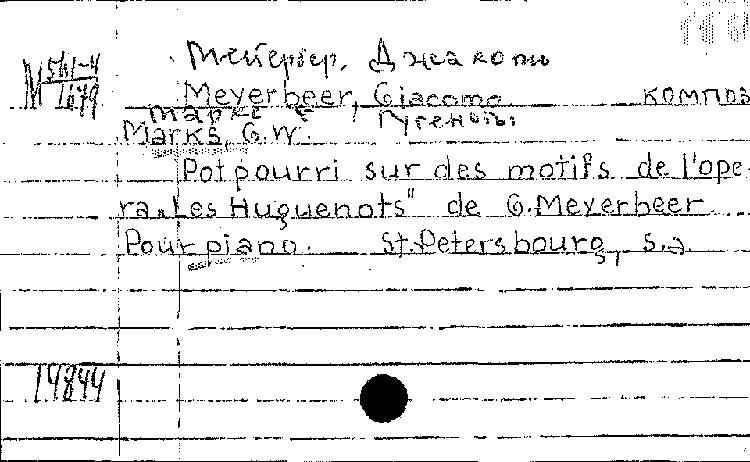 Мейербер, Джакомо
М 561-4
1679
Meyerbeer, Giacomo композ
Маркс Г. Гугеноты
Marks, G.W.
Potpourri sur des motifs de l'ope-
ra „Les Huguenots" de G. Meyerbeer
Pour piano. St.Petersbourg, s.a.
14844